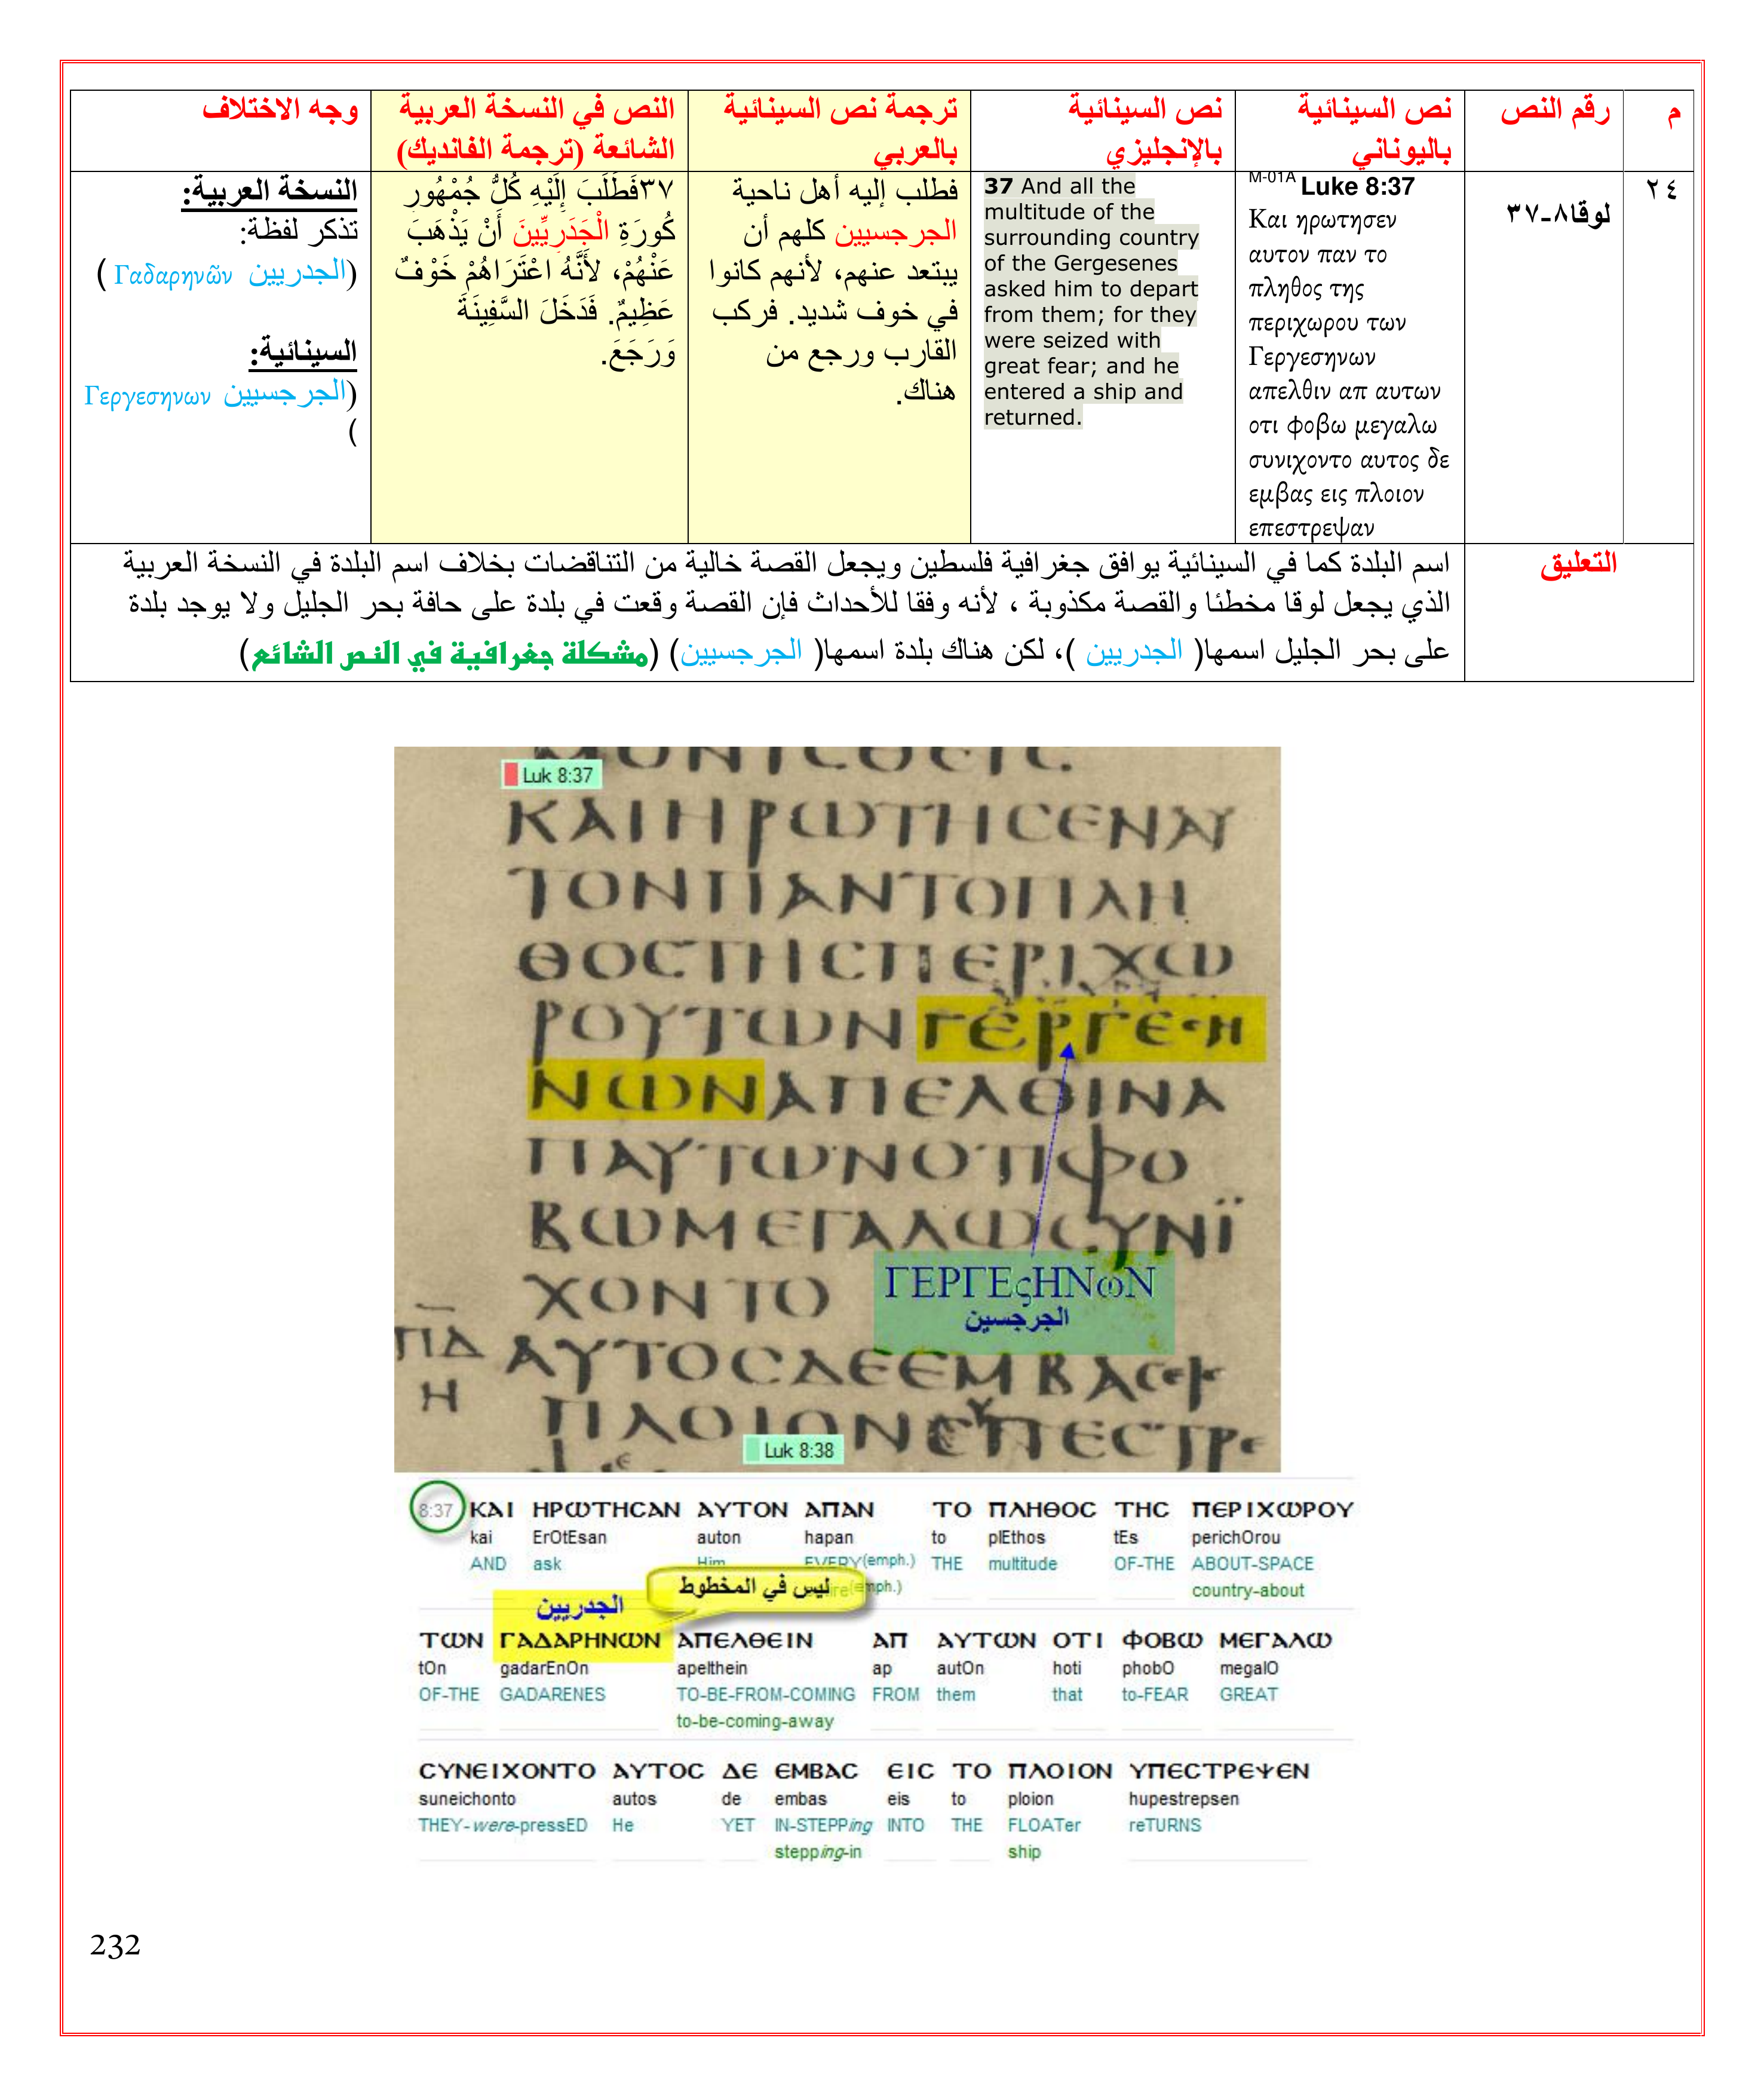 م
رقم النص
نص السينائية
باليوناني
نص السينائية
بالإنجليزي
ترجمة نص السينائية
بالعربي
النص في النسخة العربية
الشائعة (ترجمة الفانديك)
وجه الاختلاف
٢٤
لوقا٨-٣٧
M-01A Luke 8:37
Και ηρωτησεν
αυτον παν το
πληθος της
περιχωρου των
Γεργεσηνων
απελθιν απ αυτων
οτι φοβω μεγαλω
συνιχοντο αυτος δε
εμβας εις πλοιον
επεστρεψαν
37 And all the
multitude of the
surrounding country
of the Gergesenes
asked him to depart
from them; for they
were seized with
great fear; and he
entered a ship and
returned.
فطلب إليه أهل ناحية
الجرجسيين كلهم أن
يبتعد عنهم، لأنهم كانوا
في خوف شديد. فركب
القارب ورجع من
هناك.
٣٧فَطَلَبَ إِلَيْهِ كُلُّ جُمْهُورِ
كُورَةِ الْجَدَرِيِّينَ أَنْ يَذْهَبَ
عَنْهُمْ، لأَنَّهُ اعْتَرَاهُمْ خَوْفٌ
عَظِيمٌ. فَدَخَلَ السَّفِينَةَ
وَرَجَعَ.
النسخة العربية:
تذكر لفظة:
(الجدريين Γαδαρηνῶν )
السينائية:
(الجرجسيين Γεργεσηνων
)
التعليق
اسم البلدة كما في السينائية يوافق جغرافية فلسطين ويجعل القصة خالية من التناقضات بخلاف اسم البلدة في النسخة العربية
الذي يجعل لوقا مخطئا والقصة مكذوبة ، لأنه وفقا للأحداث فإن القصة وقعت في بلدة على حافة بحر الجليل ولا يوجد بلدة
على بحر الجليل اسمها( الجدريين )، لكن هناك بلدة اسمها( الجرجسيين) (مشكلة جغرافية في النص الشائع)
Luk 8:37
ΚΑΙΗΡΩΤΗCΕΝΑΥ
ΤΟΝΠΑΝΤΟΠΛΗ
ΘΟCΤΗCΠΕΡΙΧΩ
ΡΟΥΤΩΝΓΕΡΓΕCΗ
ΝΩΝΑΠΕΛΘΙΝΑ
ΠΑΥΤΩΝΟΤΙΦΟ
ΒΩΜΕΓΑΛΩCΥΝΪ
ΧΟΝΤΟ
ΓΕΡΓΕςΗΝωΝ
الجرجسين
ΠΔ
Η
ΑΥΤΟCΔΕΕΜΒΑCΕΙ
ΠΛΟΙΟΝΕΠΕCΤΡΕ
Luk 8:38
8:37 ΚΑΙ ΗΡΩΤΗCΑΝ ΑΥΤΟΝ ΑΠΑΝ ΤΟ ΠΛΗΘΟC ΤΗC ΠΕΡΙΧΩΡΟΥ
kai ErOtEsan auton hapan to plEthos tEs perichOrou
AND ask Him EVERY(emph.) THE multitude OF-THE ABOUT-SPACE
ليس في المخطوط
country-about
الجدريين
ΤΩΝ ΓΑΔΑΡΗΝΩΝ ΑΠΕΛΘΕΙΝ ΑΠ ΑΥΤΩΝ ΟΤΙ ΦΟΒΩ ΜΕΓΑΛΩ
tOn gadarEnOn apelthein ap autOn hoti phobO megalO
OF-THE GADARENES TO-BE-FROM-COMING FROM them that to-FEAR GREAT
to-be-coming-away
CΥΝΕΙΧΟΝΤΟ ΑΥΤΟC ΔΕ ΕΜΒΑC ΕΙC ΤΟ ΠΛΟΙΟΝ ΥΠΕCΤΡΕΨΕΝ
suneichonto autos de embas eis to ploion hupestrepsen
THEY-were-pressED He YET IN-STEPPing INTO THE FLOATer reTURNS
stepping-in ship
232